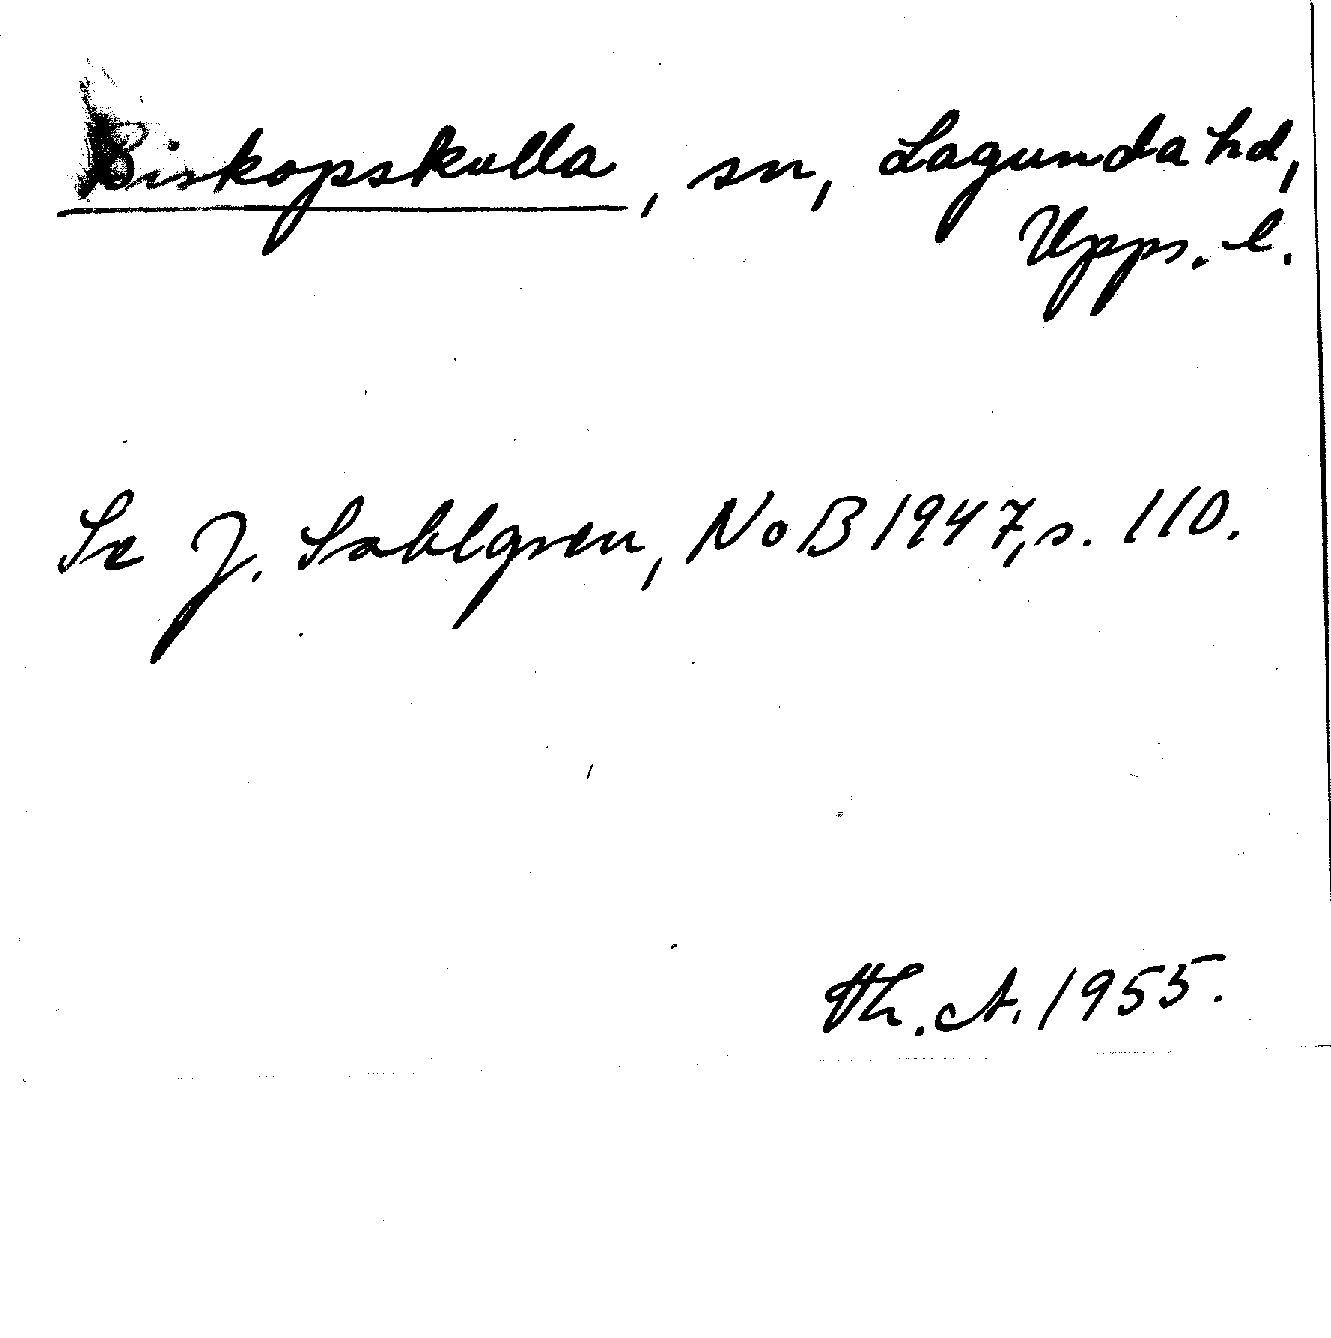 Biskopskulla, sn, Lagunda hd,
Upps. l.
Se J. Sahlgren, NoB 1947, s. 110.
Th. A. 1955.